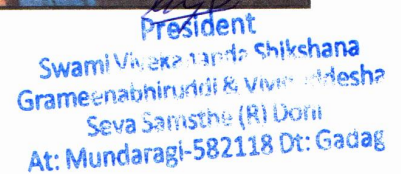 President
Swami Vivekananda Shikshana
Grameenabhiruddi & Vivi
Seva Samsthe (R) Doni
At: Mundaragi-582118 Dt: Gadag